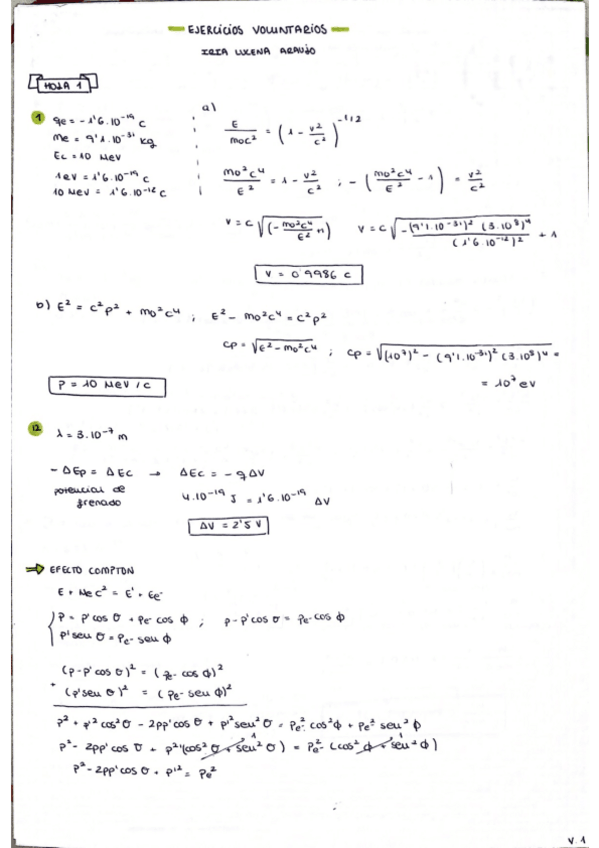 EJERCICIOS VOLUNTARIOS
IRIA LUCENA ARAUJO
HOJA 1
1
qe = -1'6.10^-19 C
me = 9'1.10^-31 kg
Ec = 10 MeV
1eV = 1'6.10^-19 C
10 MeV = 1'6.10^-12 C
a)
E/moc² = (1 - v²/c²)^-1/2
mo²c⁴/E² = 1 - v²/c² ; - (mo²c⁴/E² - 1) = v²/c²
v = c √((-mo²c⁴/E² + 1) v = c √(-(9'1.10^-31)² (3.10⁸)⁴/(1'6.10^-12)² + 1
v = 0'9986 c
b) E² = c²p² + mo²c⁴ ; E² - mo²c⁴ = c²p²
cp = √(E² - mo²c⁴ ; cp = √((10⁷)² - (9'1.10^-31)² (3.10⁸)⁴ =
= 10⁷ eV
P = 10 MeV/c
12
λ = 3.10^-7 m
- ΔEp = ΔEc → ΔEc = - q ΔV
potencial de
frenado
4.10^-19 J = 1'6.10^-19 ΔV
ΔV = 2'5 V
⇒ EFECTO COMPTON
E + Mec² = E' + Ee-
P = P' cos σ + Pe- cos ϕ ; p - p' cos σ = Pe- cos ϕ
P' seu σ = Pe- seu ϕ
(p - p' cos σ)² = (Pe- cos ϕ)²
+ (p' seu σ)² = (Pe- seu ϕ)²
p² + p'² cos² σ - 2pp' cos σ + p'² seu² σ = Pe²- cos² ϕ + Pe² seu² ϕ
p² - 2pp' cos σ + p'² (cos² σ + seu² σ) = Pe²- (cos² ϕ + seu² ϕ)
1 1
p² - 2pp' cos σ + p'² = Pe²
V.1